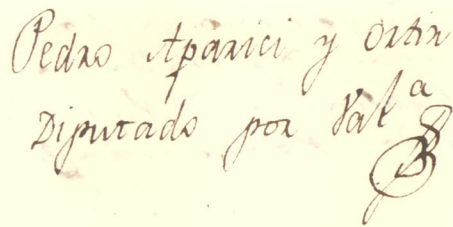 Pedro Aparici y Ortiz
Diputado por Val.a